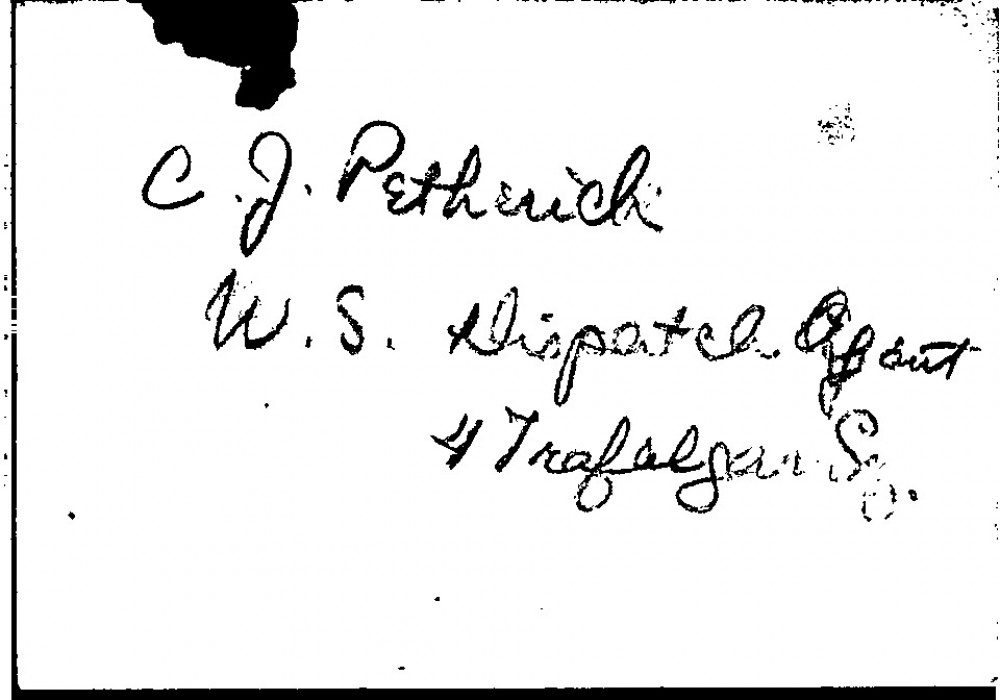 C. J. Petherick
U. S. Dispatch Agent
4 Trafalgar Sq.